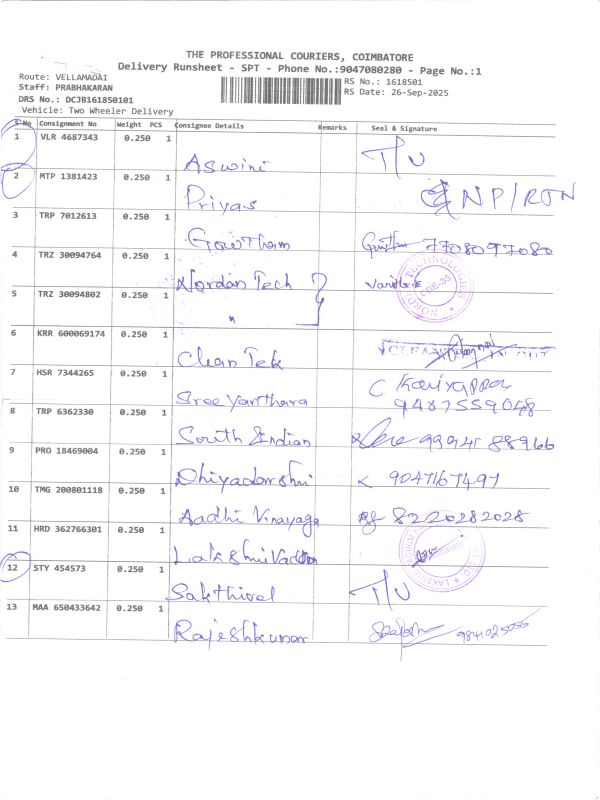 THE PROFESSIONAL COURIERS, COIMBATORE
Delivery Runsheet - SPT - Phone No.:9047080280 - Page No.:1
Route: VELLAMADAI
RS No.: 1618501
Staff: PRABHAKARAN
RS Date: 26-Sep-2025
DRS No.: DCJB161850101
Vehicle: Two Wheeler Delivery
S No Consignment No Weight PCS Consignee Details Remarks Seal & Signature
1 VLR 4687343 0.250 1
Aswini T/U
2 MTP 1381423 0.250 1
Priyas NP/RTN
3 TRP 7012613 0.250 1
Gowtham 7708097080
4 TRZ 30094764 0.250 1
Nordan Tech
5 TRZ 30094802 0.250 1
"
6 KRR 600069174 0.250 1
Clean Tek
7 HSR 7344265 0.250 1
Sree Yanthara 9487559048
8 TRP 6362330 0.250 1
South Indian 99941 88966
9 PRO 18469004 0.250 1
Dhiyadarshni 9047167497
10 TMG 200801118 0.250 1
Aadhi Vinayaga 8220282028
11 HRD 362766301 0.250 1
12 STY 454573 0.250 1
Sakthivel T/U
13 MAA 650433642 0.250 1
Rajeshkumar